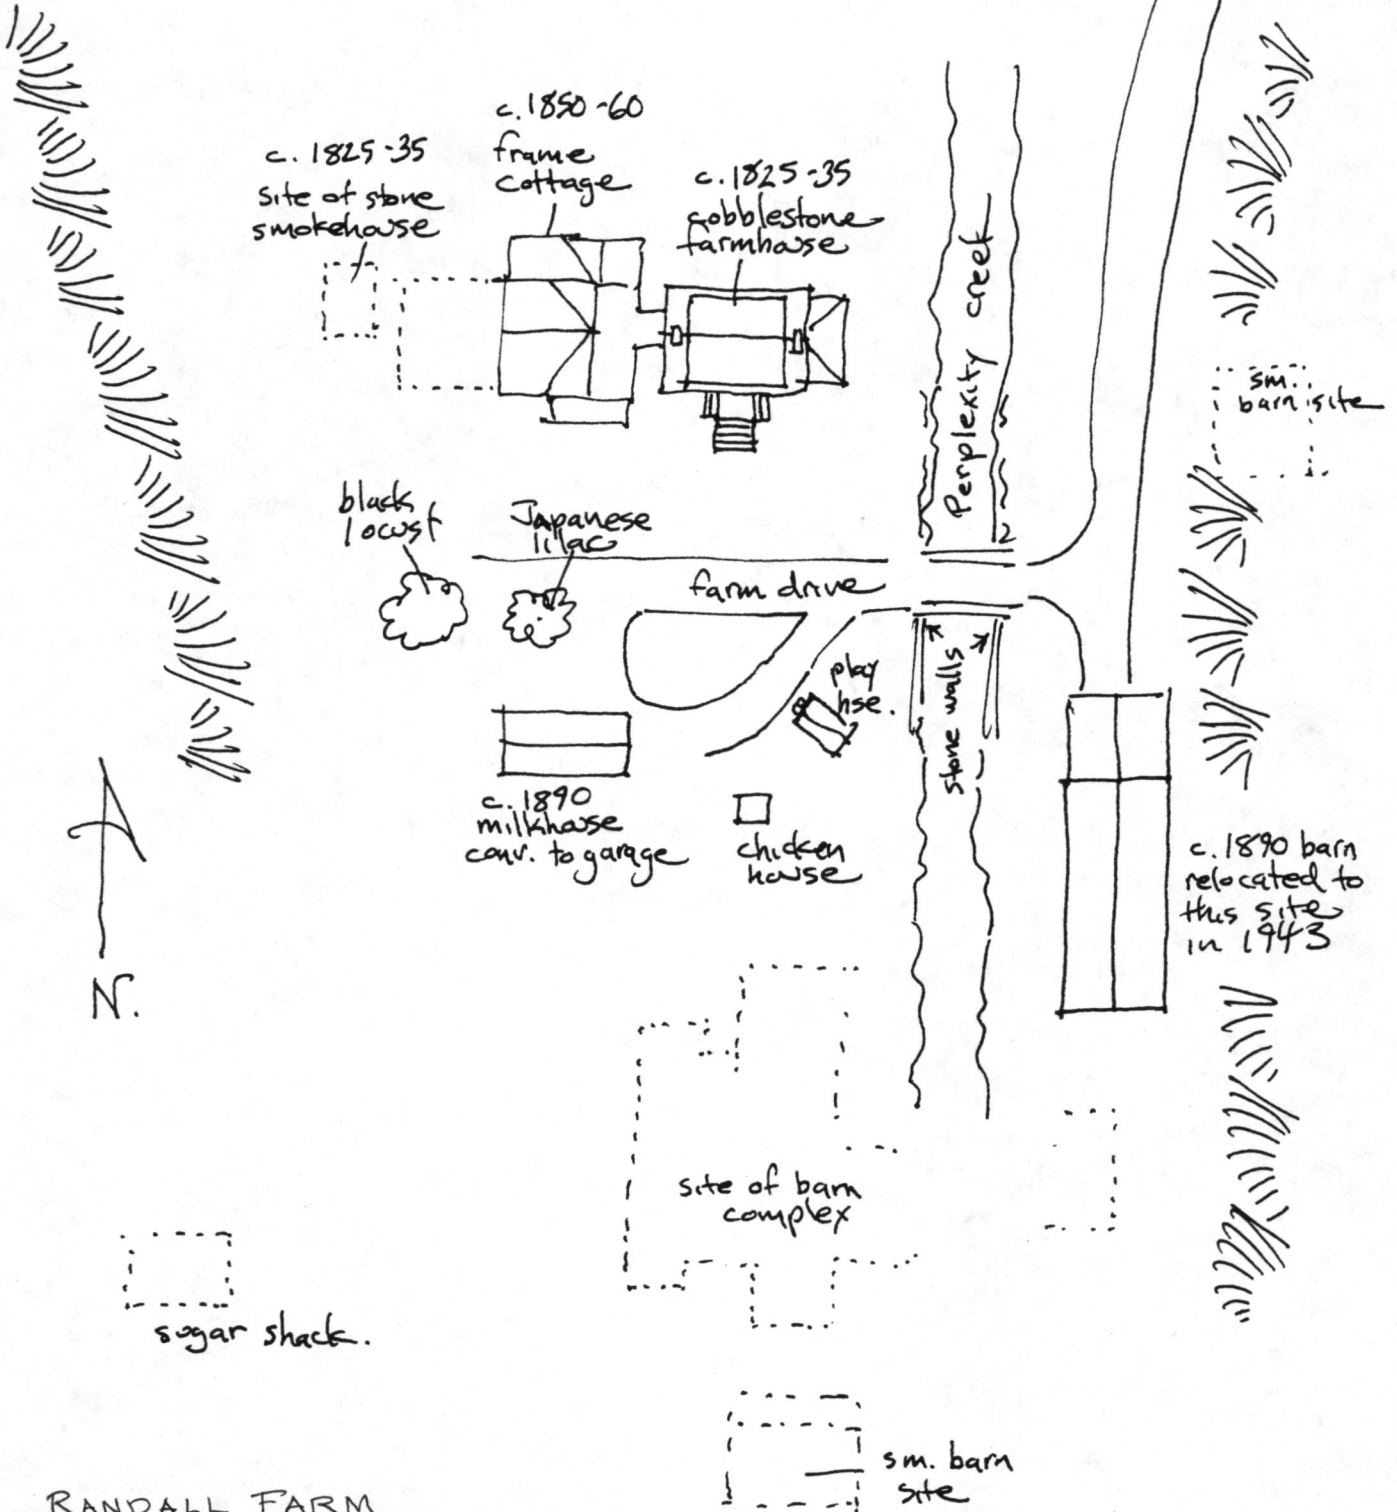 c. 1850-60
frame
cottage
c. 1825-35
site of stone
smokehouse
c. 1825-35
cobblestone
farmhouse
Perplexity creek
sm.
barn site
black
locust
Japanese
lilac
farm drive
play
hse.
stone walls
c. 1890
milkhouse
conv. to garage
chicken
house
c. 1890 barn
relocated to
this site
in 1943
N.
site of barn
complex
sugar shack.
sm. barn
site
RANDALL FARM